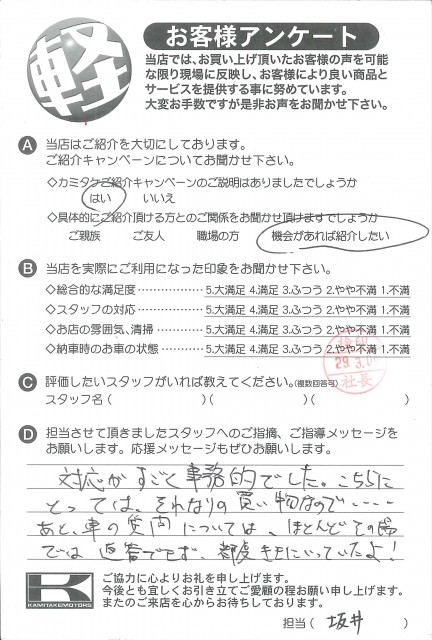 軽
お客様アンケート
当店では、お買い上げ頂いたお客様の声を可能
な限り現場に反映し、お客様により良い商品と
サービスを提供する事に努めています。
大変お手数ですが是非お声をお聞かせ下さい。
A 当店はご紹介を大切にしております。
ご紹介キャンペーンについてお聞かせ下さい。
◇カミタケご紹介キャンペーンのご説明はありましたでしょうか
はい いいえ
◇具体的にご紹介頂ける方とのご関係をお聞かせ頂けますでしょうか
ご親族 ご友人 職場の方 機会があれば紹介したい
B 当店を実際にご利用になった印象をお聞かせ下さい。
◇総合的な満足度 ……………… 5.大満足 4.満足 3.ふつう 2.やや不満 1.不満
◇スタッフの対応 ……………… 5.大満足 4.満足 3.ふつう 2.やや不満 1.不満
◇お店の雰囲気、清掃 ………… 5.大満足 4.満足 3.ふつう 2.やや不満 1.不満
◇納車時のお車の状態 ………… 5.大満足 4.満足 3.ふつう 2.やや不満 1.不満
検印
29.3.
社長
C 評価したいスタッフがいれば教えてください。(複数回答可)
スタッフ名 ( )( )( )
D 担当させて頂きましたスタッフへのご指摘、ご指導メッセージを
お願いします。応援メッセージもぜひお願いします。
対応がすごく事務的でした。こちらに
とっては、それなりの買い物なので・・・・
あと、車の質問については、ほとんどその場
では 返答でせず、都度ききにいっていたよ!
K
KAMITAKEMOTORS
ご協力に心よりお礼を申し上げます。
今後とも宜しくお引き立てご愛顧の程お願い申し上げます。
またのご来店を心からお待ちしております。
担当 ( 坂井 )